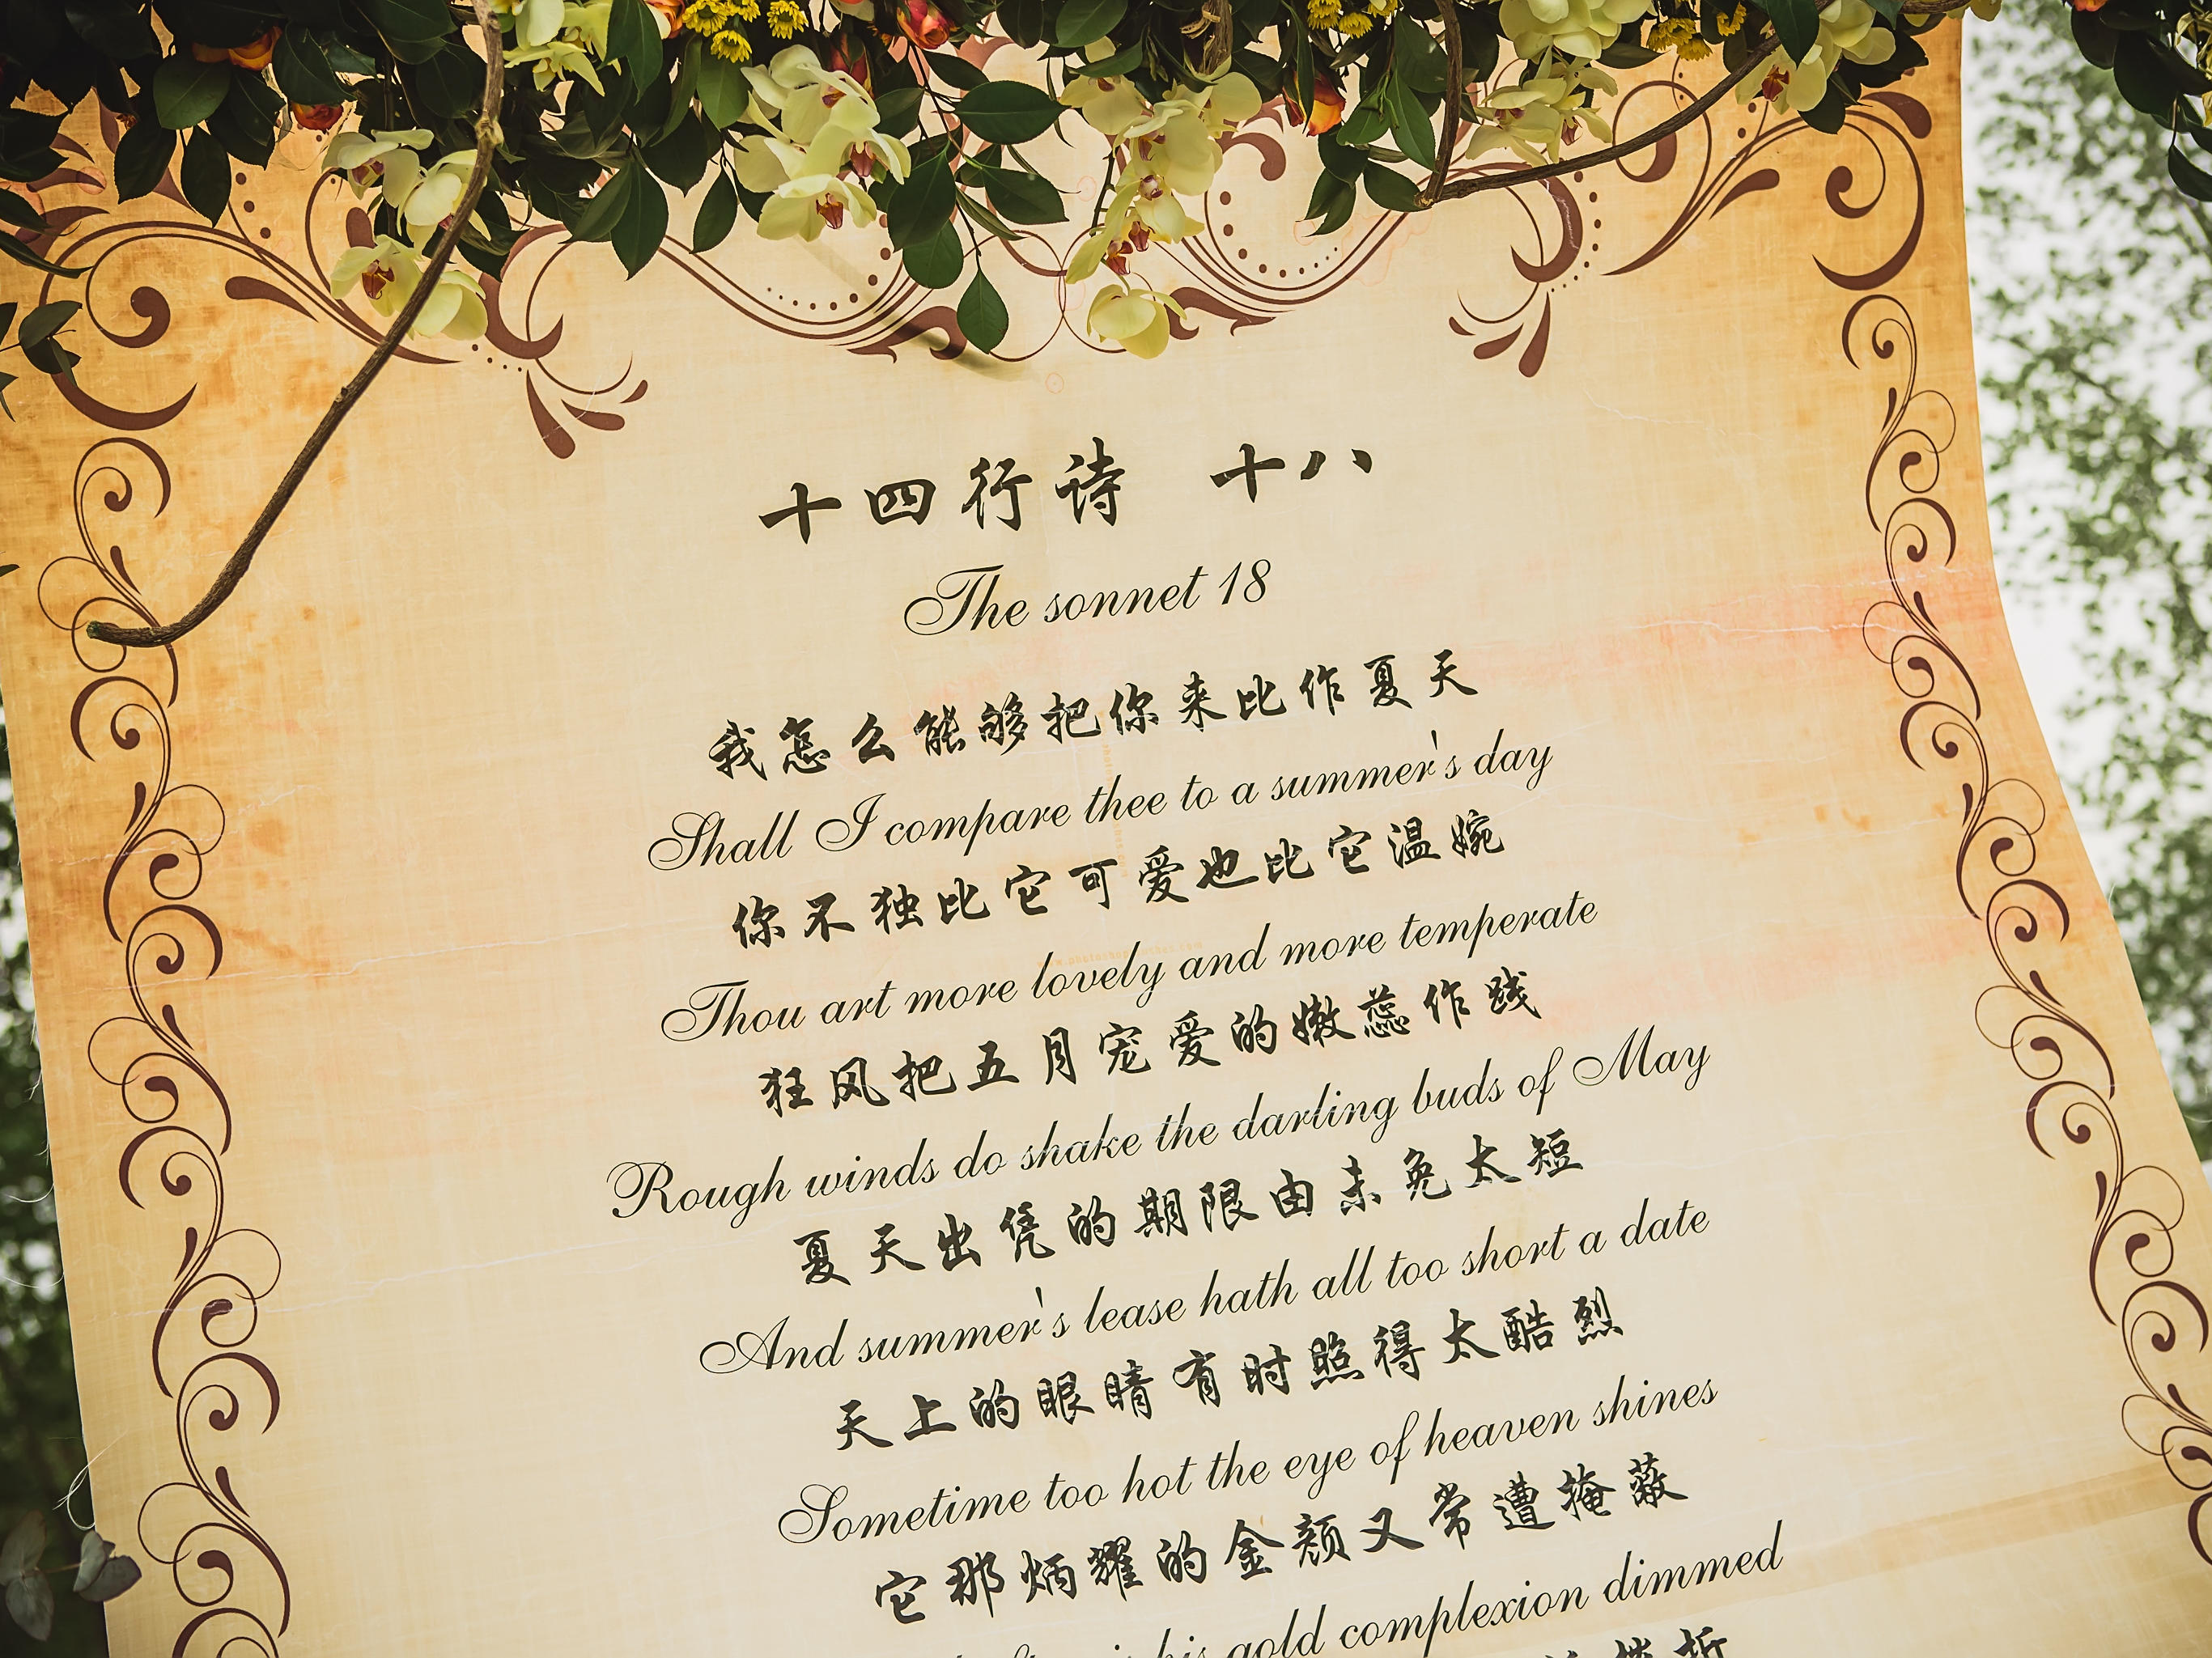 十四行诗 十八
The sonnet 18
我怎么能够把你来比作夏天
Shall I compare thee to a summer's day
你不独比它可爱也比它温婉
Thou art more lovely and more temperate
狂风把五月宠爱的嫩蕊作践
Rough winds do shake the darling buds of May
夏天出凭的期限由未免太短
And summer's lease hath all too short a date
天上的眼睛有时照得太酷烈
Sometime too hot the eye of heaven shines
它那炳耀的金颜又常遭掩蔽
his gold complexion dimmed